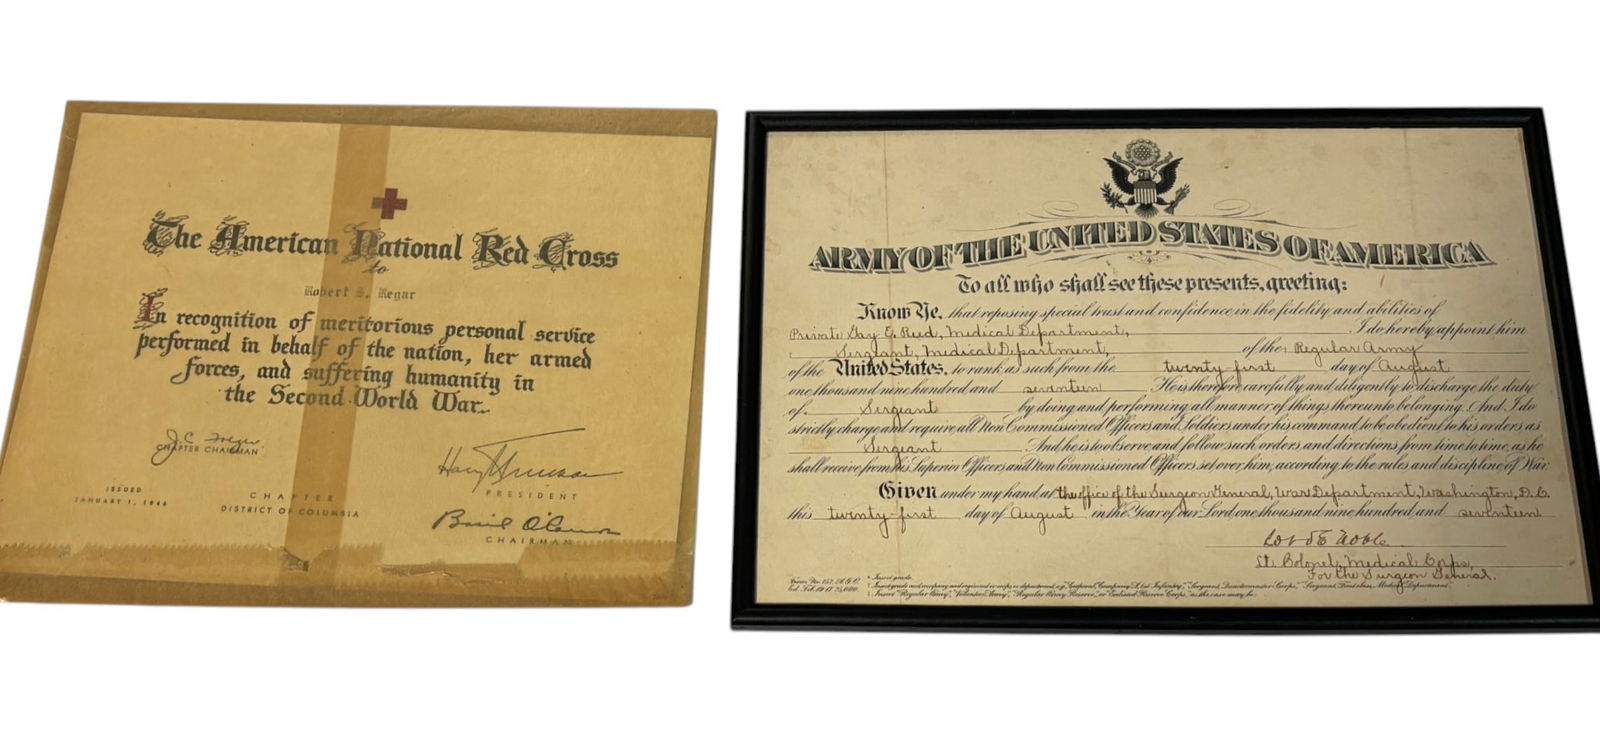 The American National Red Cross
to
Robert S. Regar
In recognition of meritorious personal service
performed in behalf of the nation, her armed
forces, and suffering humanity in
the Second World War.
J.C.
CHAPTER CHAIRMAN
Harry S Truman
PRESIDENT
ISSUED
JANUARY 1, 1946
CHAPTER
DISTRICT OF COLUMBIA
Basil O'Connor
CHAIRMAN
ARMY OF THE UNITED STATES OF AMERICA
To all who shall see these presents, greeting:
Know Ye, that reposing special trust and confidence in the fidelity and abilities of
Private Guy E. Reed, Medical Department, I do hereby appoint him
Sergeant, Medical Department, of the Regular Army
of the United States, to rank as such from the twenty-first day of August
one thousand nine hundred and seventeen. He is therefore carefully and diligently to discharge the duty
of Sergeant by doing and performing all manner of things thereunto belonging. And I do
strictly charge and require all Non Commissioned Officers and Soldiers under his command to be obedient to his orders as
Sergeant. And he is to observe and follow such orders and directions from time to time, as he
shall receive from his Superior Officers and Non Commissioned Officers set over him, according to the rules and discipline of War.
Given under my hand at the office of the Surgeon General, War Department, Washington, D.C.
this twenty-first day of August in the Year of our Lord one thousand nine hundred and seventeen
Robt E Noble
Lt Colonel, Medical Corps,
For the Surgeon General.
Form No. 157, A.G.O.
Ed. Feb. 19 17 25,000.
* Insert grade.
† Insert grade and company and regiment or corps or department, e.g. "Corporal, Company A, 1st Infantry," "Sergeant, Quartermaster Corps," "Sergeant, First class, Medical Department"
‡ Insert "Regular Army," "Volunteer Army," "Regular Army Reserve," or "Enlisted Reserve Corps," as the case may be.